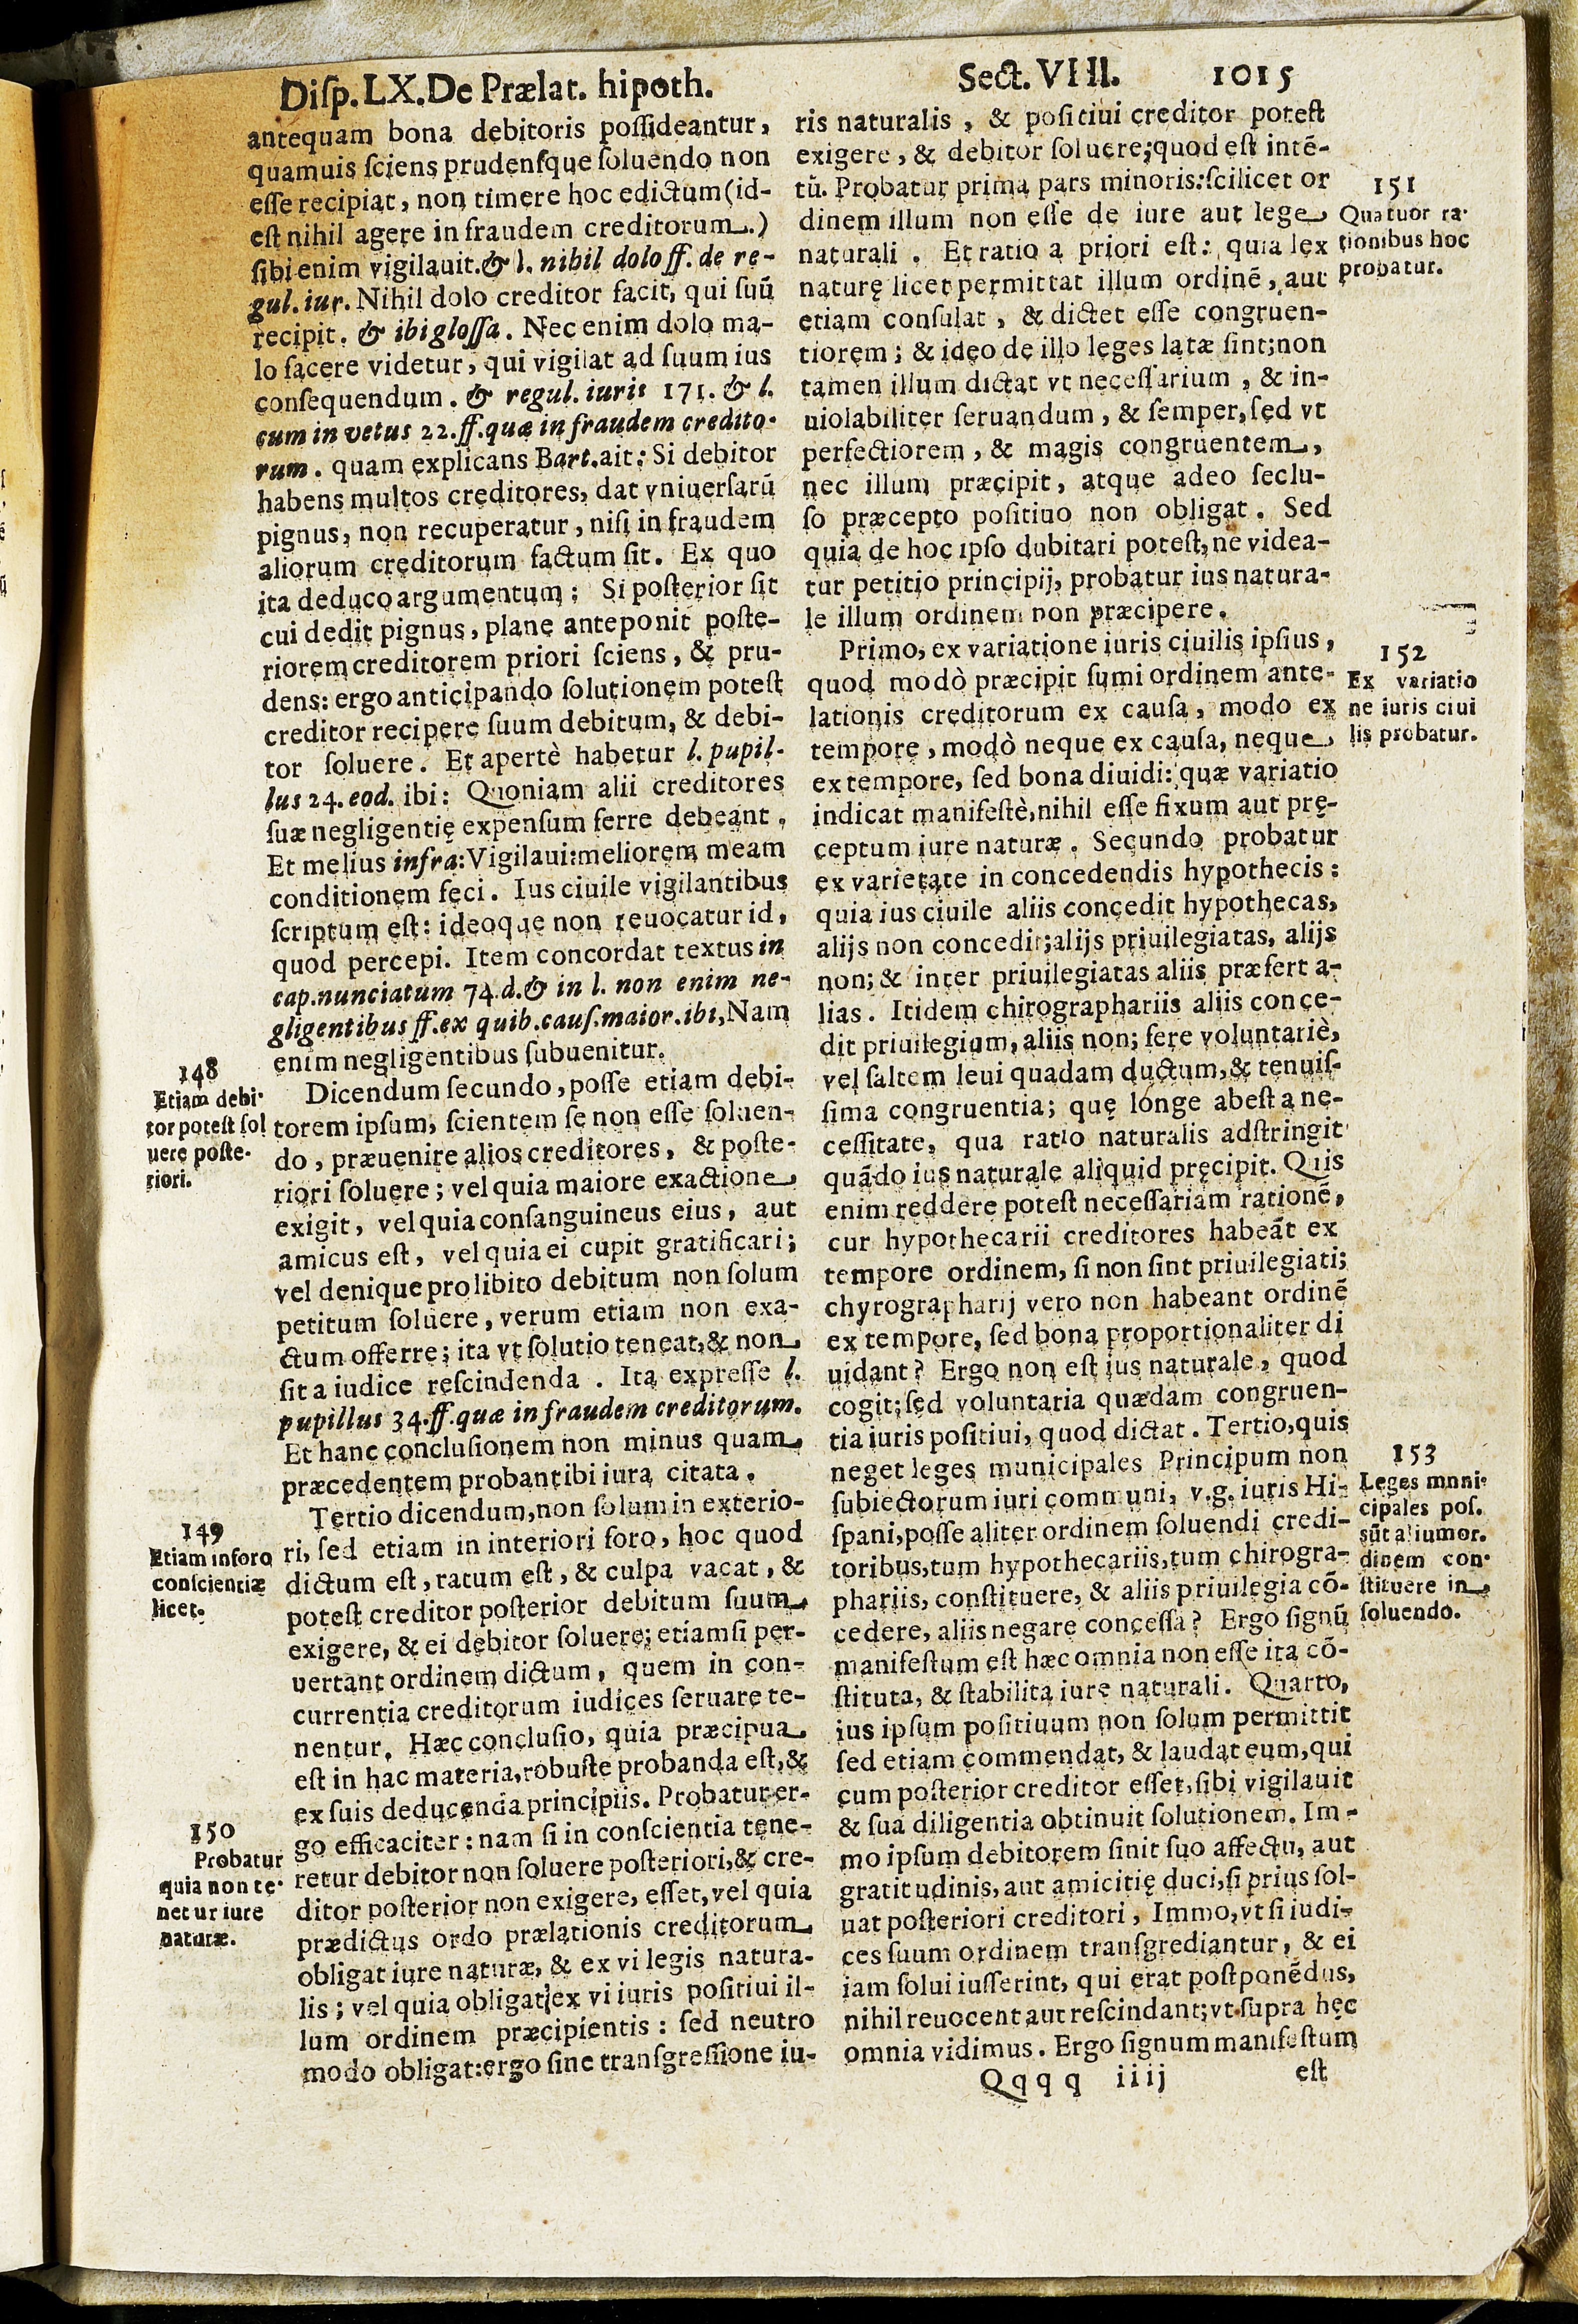 Disp. LX. De Prælat. hipoth.
Sect. VIII. 1015
antequam bona debitoris possideantur,
quamuis sciens prudensque soluendo non
esse recipiat, non timere hoc edictum (id-
est nihil agere in fraudem creditorum.)
sibi enim vigilauit. & l. nihil dolo ff. de re-
gul. iur. Nihil dolo creditor facit, qui suũ
recipit. & ibi glossa. Nec enim dolo ma-
lo facere videtur, qui vigilat ad suum ius
consequendum. & regul. iuris 171. & l.
cum in vetus 22. ff. quæ in fraudem credito-
rum. quam explicans Bart. ait: Si debitor
habens multos creditores, dat vniuersarũ
pignus, non recuperatur, nisi in fraudem
aliorum creditorum factum sit. Ex quo
ita deduco argumentum: Si posterior sit
cui dedit pignus, plane anteponit poste-
riorem creditorem priori sciens, & pru-
dens: ergo anticipando solutionem potest
creditor recipere suum debitum, & debi-
tor soluere. Et apertè habetur l. pupil-
lus 24. eod. ibi: Quoniam alii creditores
suæ negligentię expensum ferre debeant.
Et melius infra: Vigilaui: meliorem meam
conditionem feci. Ius ciuile vigilantibus
scriptum est: ideoque non reuocatur id,
quod percepi. Item concordat textus in
cap. nunciatum 74. d. & in l. non enim ne-
gligentibus ff. ex quib. caus. maior. ibi, Nam
enim negligentibus subuenitur.
148
Etiam debi-
tor potest sol
uere poste-
riori.
Dicendum secundo, posse etiam debi-
torem ipsum, scientem se non esse soluen-
do, præuenire alios creditores, & poste-
riori soluere; vel quia maiore exactione
exigit, vel quia consanguineus eius, aut
amicus est, vel quia ei cupit gratificari;
vel denique pro libito debitum non solum
petitum soluere, verum etiam non exa-
ctum offerre; ita vt solutio teneat, & non
sit a iudice rescindenda. Ita expresse l.
pupillus 34. ff. quæ in fraudem creditorum.
Et hanc conclusionem non minus quam
præcedentem probant ibi iura citata.
149
Etiam in foro
conscientiæ
licet.
Tertio dicendum, non solum in exterio-
ri, sed etiam in interiori foro, hoc quod
dictum est, ratum est, & culpa vacat, &
potest creditor posterior debitum suum
exigere, & ei debitor soluere; etiamsi per-
uertant ordinem dictum, quem in con-
currentia creditorum iudices seruare te-
nentur. Hæc conclusio, quia præcipua
est in hac materia, robuste probanda est, &
ex suis deducenda principiis. Probatur er-
150
Probatur
quia non te-
netur iure
naturæ.
go efficaciter: nam si in conscientia tene-
retur debitor non soluere posteriori, & cre-
ditor posterior non exigere, esset, vel quia
prædictus ordo prælationis creditorum
obligat iure naturæ, & ex vi legis natura-
lis; vel quia obligat ex vi iuris positiui il-
lum ordinem præcipientis: sed neutro
modo obligat: ergo sine transgressione iu-
ris naturalis, & positiui creditor potest
exigere, & debitor soluere; quod est intẽ-
tũ. Probatur prima pars minoris: scilicet or
dinem illum non esse de iure aut lege
naturali. Et ratio a priori est: quia lex
naturę licet permittat illum ordinẽ, aut
etiam consulat, & dictet esse congruen-
tiorem; & ideo de illo leges latæ sint; non
tamen illum dictat vt necessarium, & in-
uiolabiliter seruandum, & semper, sed vt
perfectiorem, & magis congruentem,
nec illum præcipit, atque adeo seclu-
so præcepto positiuo non obligat. Sed
quia de hoc ipso dubitari potest, ne videa-
tur petitio principij, probatur ius natura-
le illum ordinem non præcipere.
151
Quatuor ra-
tionibus hoc
probatur.
Primo, ex variatione iuris ciuilis ipsius,
quod modò præcipit sumi ordinem ante-
lationis creditorum ex causa, modo ex
tempore, modò neque ex causa, neque
ex tempore, sed bona diuidi: quæ variatio
indicat manifestè, nihil esse fixum aut prę-
ceptum iure naturæ. Secundo probatur
ex varietate in concedendis hypothecis:
quia ius ciuile aliis concedit hypothecas,
alijs non concedit; alijs priuilegiatas, alijs
non; & inter priuilegiatas aliis præfert a-
lias. Itidem chirographariis aliis conce-
dit priuilegium, aliis non; fere voluntariè,
vel saltem leui quadam ductum, & tenuis-
sima congruentia; quę longe abest a ne-
cessitate, qua ratio naturalis adstringit
quãdo ius naturale aliquid pręcipit. Quis
enim reddere potest necessariam rationẽ,
cur hypothecarii creditores habeãt ex
tempore ordinem, si non sint priuilegiati;
chyrographarij vero non habeant ordinẽ
ex tempore, sed bona proportionaliter di
uidant? Ergo non est ius naturale, quod
cogit; sed voluntaria quædam congruen-
tia iuris positiui, quod dictat. Tertio, quis
neget leges municipales Principum non
subiectorum iuri communi, v.g. iuris Hi-
spani, posse aliter ordinem soluendi credi-
toribus, tum hypothecariis, tum chirogra-
phariis, constituere, & aliis priuilegia cõ-
cedere, aliis negare concessa? Ergo signũ
manifestum est hæc omnia non esse ita cõ-
stituta, & stabilita iure naturali. Quarto,
ius ipsum positiuum non solum permittit
sed etiam commendat, & laudat eum, qui
cum posterior creditor esset, sibi vigilauit
& sua diligentia obtinuit solutionem. Im-
mo ipsum debitorem sinit suo affectu, aut
gratitudinis, aut amicitię duci, si prius sol-
uat posteriori creditori, Immo, vt si iudi-
ces suum ordinem transgrediantur, & ei
iam solui iusserint, qui erat postponẽdus,
nihil reuocent aut rescindant; vt supra hęc
omnia vidimus. Ergo signum manifestum
152
Ex variatio
ne iuris ciui
lis probatur.
153
Leges mnni-
cipales pos.
sũt alium or.
dinem con-
stituere in
soluendo.
Qqqq iiij
est